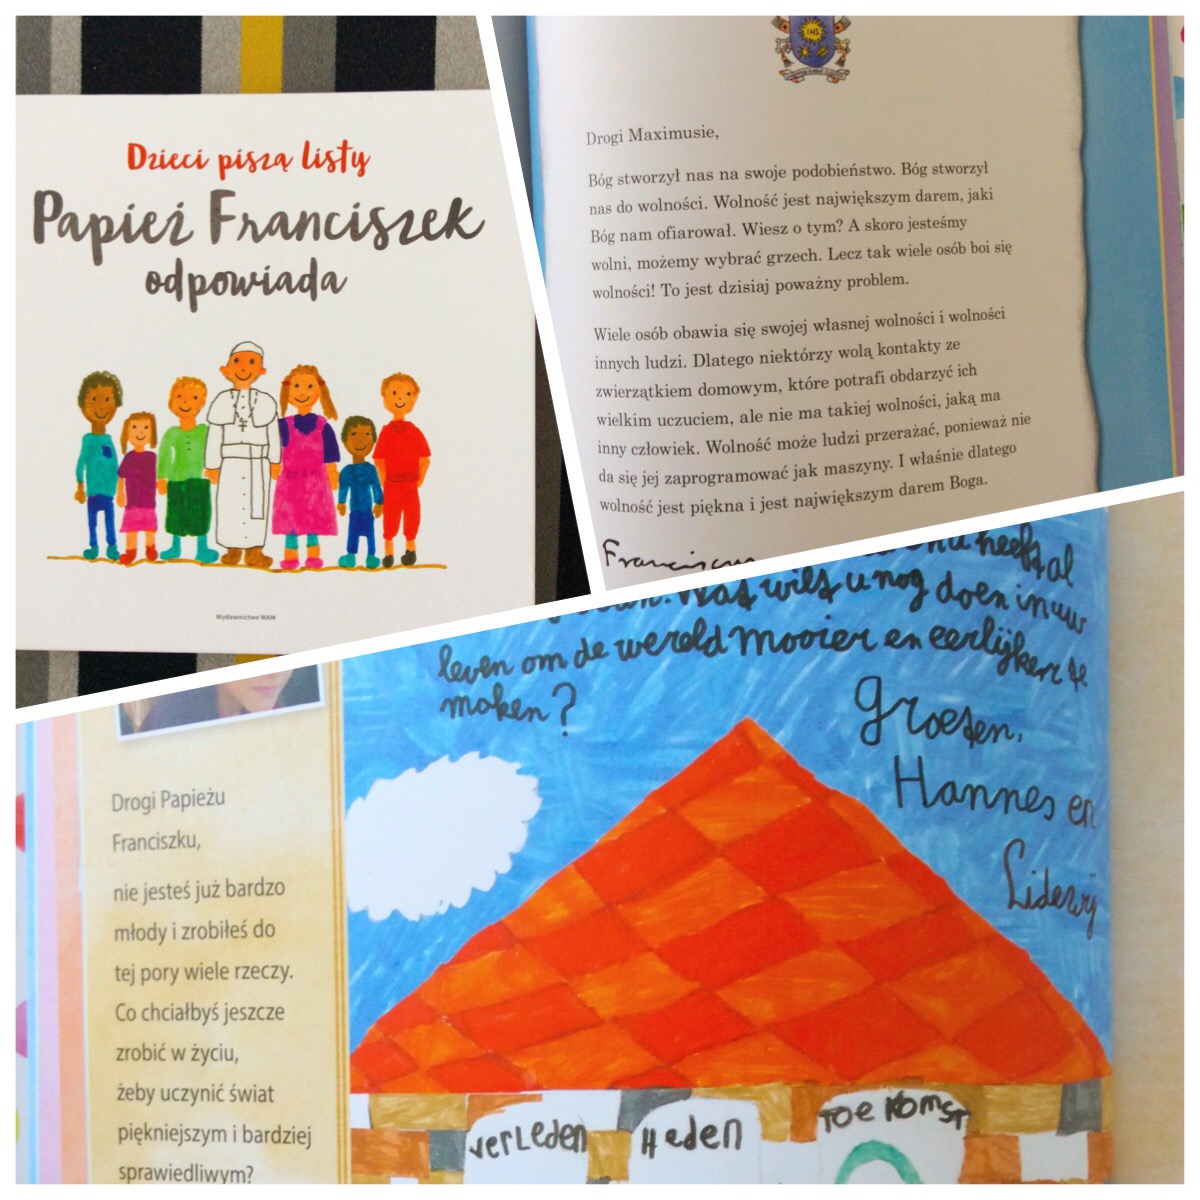 Dzieci piszą listy
Papież Franciszek
odpowiada
Wydawnictwo WAM
IHS
Drogi Maximusie,
Bóg stworzył nas na swoje podobieństwo. Bóg stworzył
nas do wolności. Wolność jest największym darem, jaki
Bóg nam ofiarował. Wiesz o tym? A skoro jesteśmy
wolni, możemy wybrać grzech. Lecz tak wiele osób boi się
wolności! To jest dzisiaj poważny problem.
Wiele osób obawia się swojej własnej wolności i wolności
innych ludzi. Dlatego niektórzy wolą kontakty ze
zwierzątkiem domowym, które potrafi obdarzyć ich
wielkim uczuciem, ale nie ma takiej wolności, jaką ma
inny człowiek. Wolność może ludzi przerażać, ponieważ nie
da się jej zaprogramować jak maszyny. I właśnie dlatego
wolność jest piękna i jest największym darem Boga.
Franciscus
heeft al
Wat wilt u nog doen in uw
leven om de wereld mooier en eerlijker te
maken?
Groeten,
Hannes en
Lidewij
Drogi Papieżu
Franciszku,
nie jesteś już bardzo
młody i zrobiłeś do
tej pory wiele rzeczy.
Co chciałbyś jeszcze
zrobić w życiu,
żeby uczynić świat
piękniejszym i bardziej
sprawiedliwym?
verleden
Heden
Toekomst